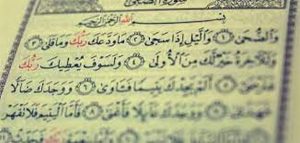 سُورَةُ الضُّحَىٰ
بِسْمِ اللَّهِ الرَّحْمَٰنِ الرَّحِيمِ
وَالضُّحَىٰ ﴿١﴾ وَالَّيْلِ إِذَا سَجَىٰ ﴿٢﴾ مَا وَدَّعَكَ رَبُّكَ وَمَا قَلَىٰ ﴿٣﴾
وَلَلْآخِرَةُ خَيْرٌ لَكَ مِنَ الْأُولَىٰ ﴿٤﴾ وَلَسَوْفَ يُعْطِيكَ رَبُّكَ
فَتَرْضَىٰ ﴿٥﴾ أَلَمْ يَجِدْكَ يَتِيمًا فَآوَىٰ ﴿٦﴾ وَوَجَدَكَ ضَالًّا
فَهَدَىٰ ﴿٧﴾ وَوَجَدَكَ عَائِلًا فَأَغْنَىٰ ﴿٨﴾ فَأَمَّا الْيَتِيمَ فَلَا تَقْهَرْ